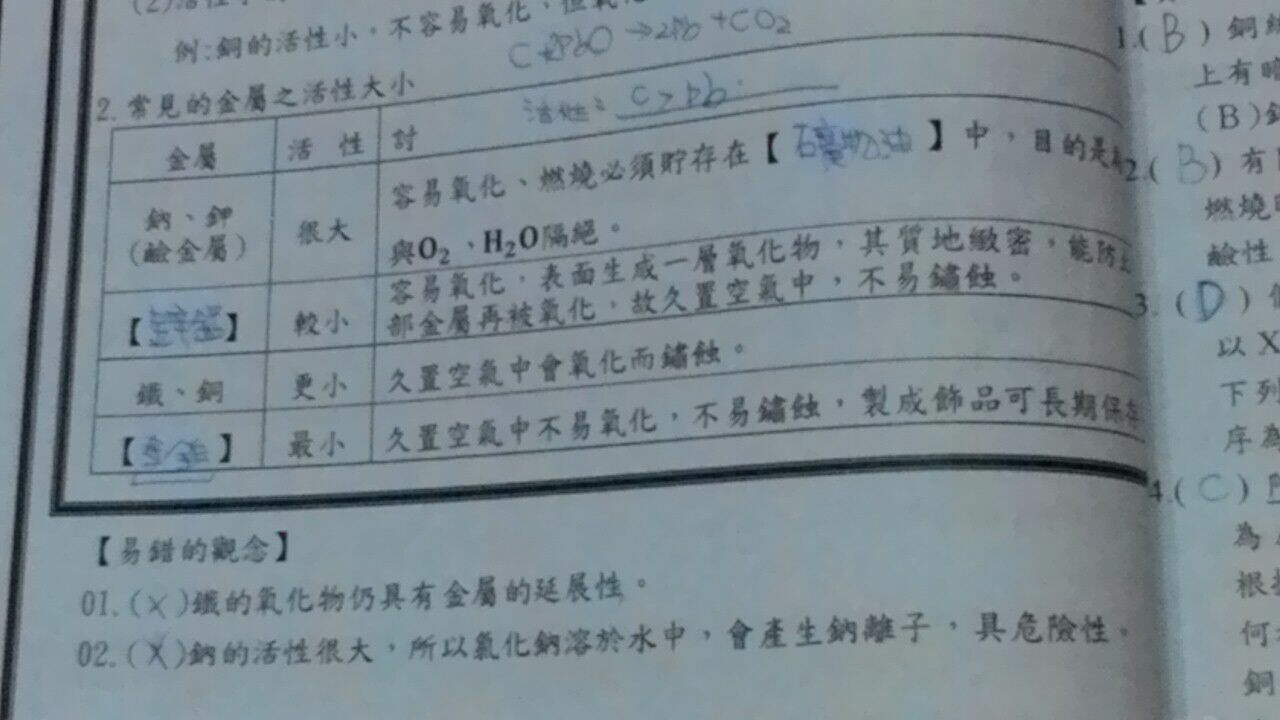 例:銅的活性小,不容易氧化、但氧化
C+2PbO→2Pb+CO₂
2.常見的金屬之活性大小
活性: C>Pb
金屬 活 性 討
鈉、鉀
(鹼金屬) 很大 容易氧化、燃燒必須貯存在【石礦物油】中,目的是
與O₂、H₂O隔絕。
【鋅鋁】 較小 容易氧化,表面生成一層氧化物,其質地緻密,能防
部金屬再被氧化,故久置空氣中,不易鏽蝕。
鐵、銅 更小 久置空氣中會氧化而鏽蝕。
【】 最小 久置空氣中不易氧化,不易鏽蝕,製成飾品可長期保存
【易錯的觀念】
01.(×)鐵的氧化物仍具有金屬的延展性。
02.(×)鈉的活性很大,所以氯化鈉溶於水中,會產生鈉離子,具危險性。
1.(B)銅
上有
(B)
2.(B)有
燃燒
鹼性
3.(D)
以X
下列
序為
4.(C)
為
根
何
銅